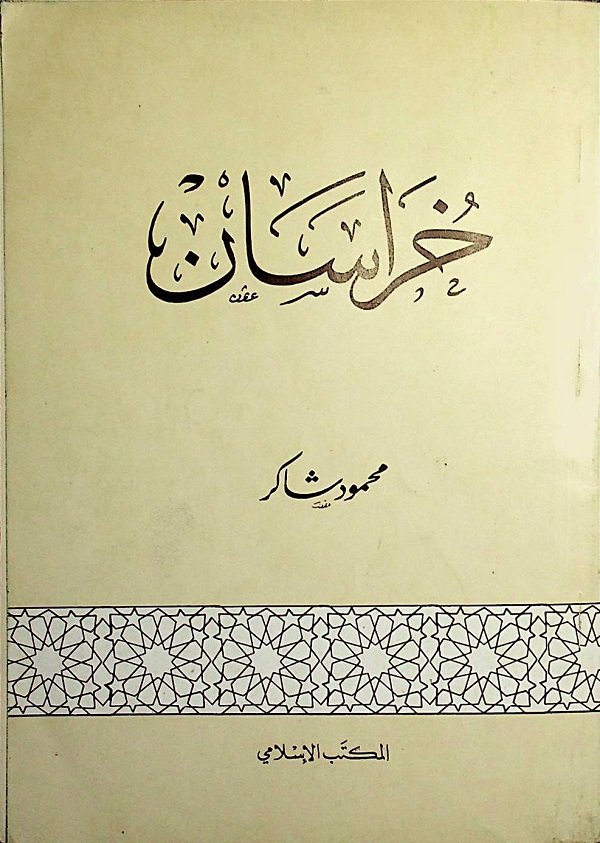 خُرَاسَانْ
محمود شاكر
المكتَب الإسْلامي